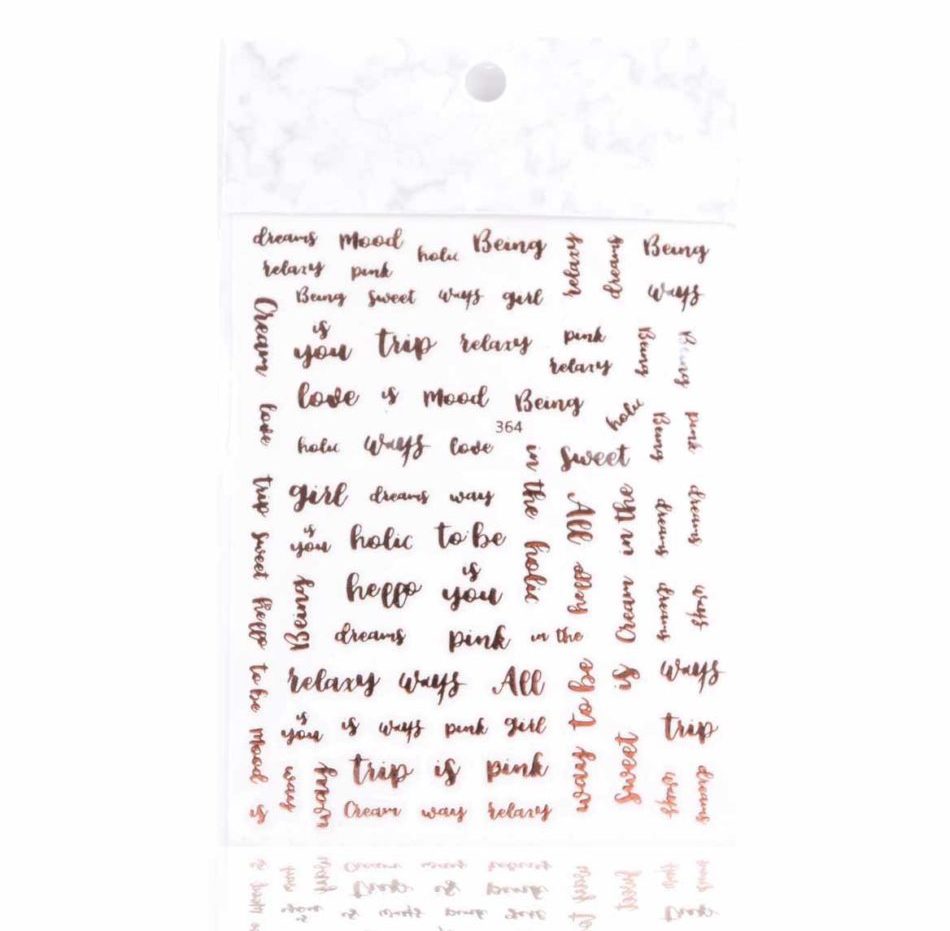 dreams Mood holic Being relaxy dreams Being
relaxy pink
Being sweet ways girl ways
Cream is you trip relaxy pink Being Being
relaxy
love is Mood Being holic
love 364 Being pink
holic ways love in the sweet
trip girl dreams way All in the dreams dreams
sweet is you holic to be holic hello
hello Being hello is you Cream dreams ways
dreams pink in the
to be relaxy ways All to be is ways
Mood is you is ways pink girl sweet trip
way trip is pink way ways dreams
is Cream way relaxy